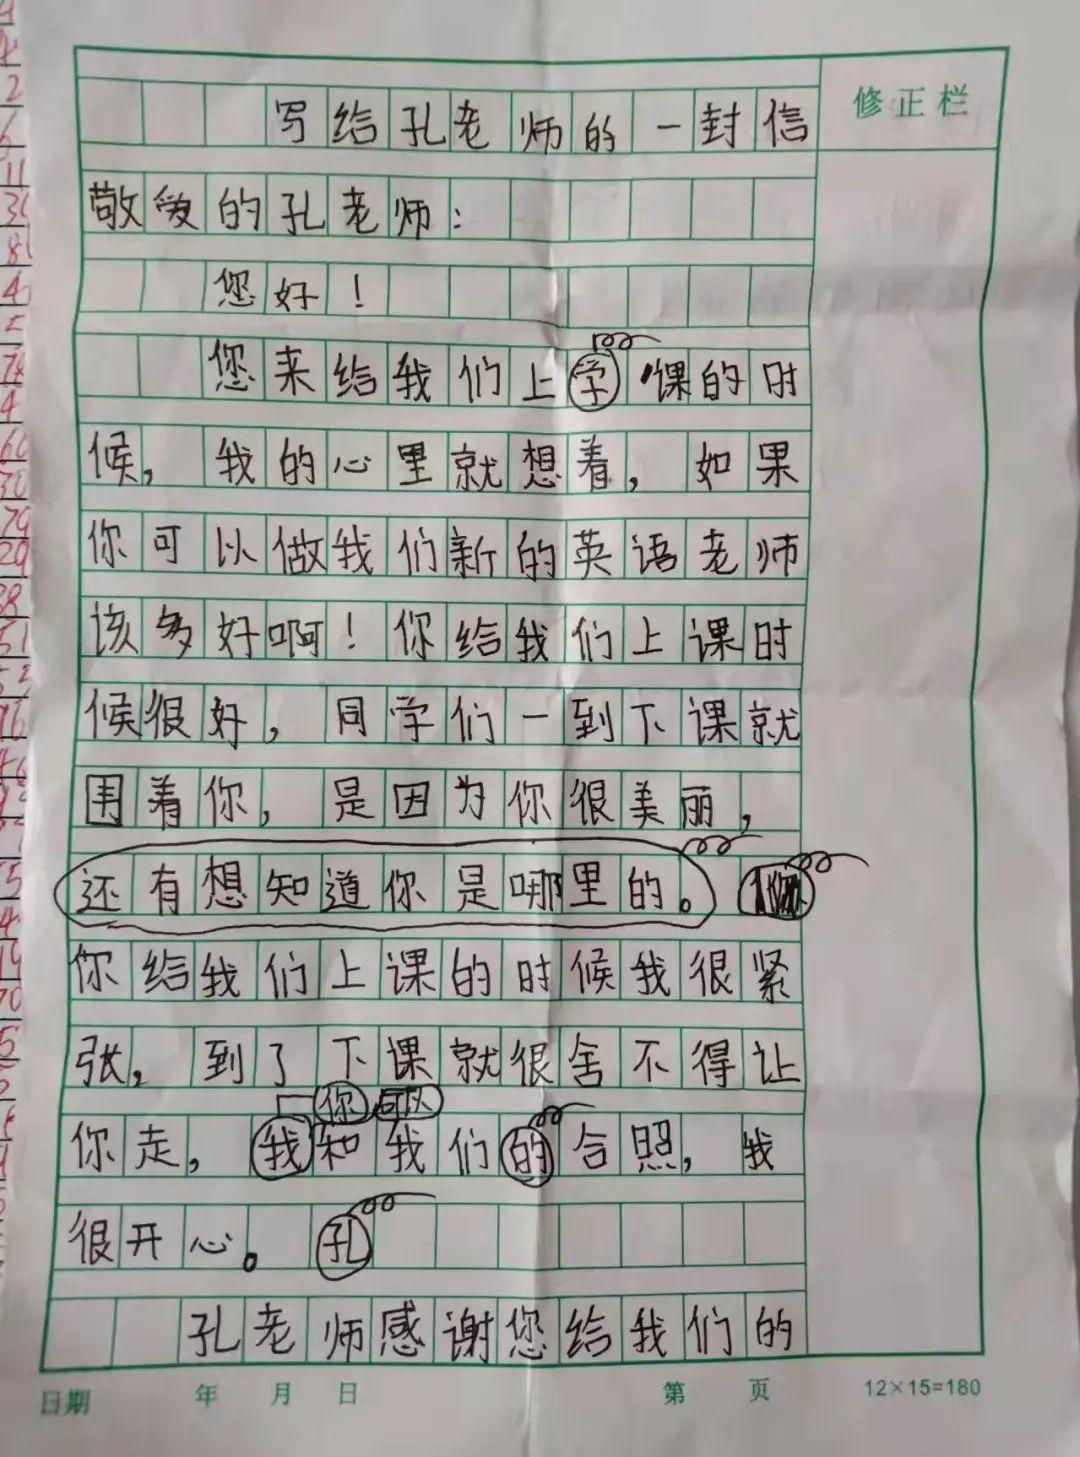 修正栏
写给孔老师的一封信
敬爱的孔老师:
您好!
您来给我们上学课的时
候,我的心里就想着,如果
你可以做我们新的英语老师
该多好啊!你给我们上课时
候很好,同学们一到下课就
围着你,是因为你很美丽,
还有想知道你是哪里的。
你给我们上课的时候我很紧
张,到了下课就很舍不得让
你可以
你走,我和我们的合照,我
很开心。孔
孔老师感谢您给我们的
日期 年 月 日 第 页 12×15=180